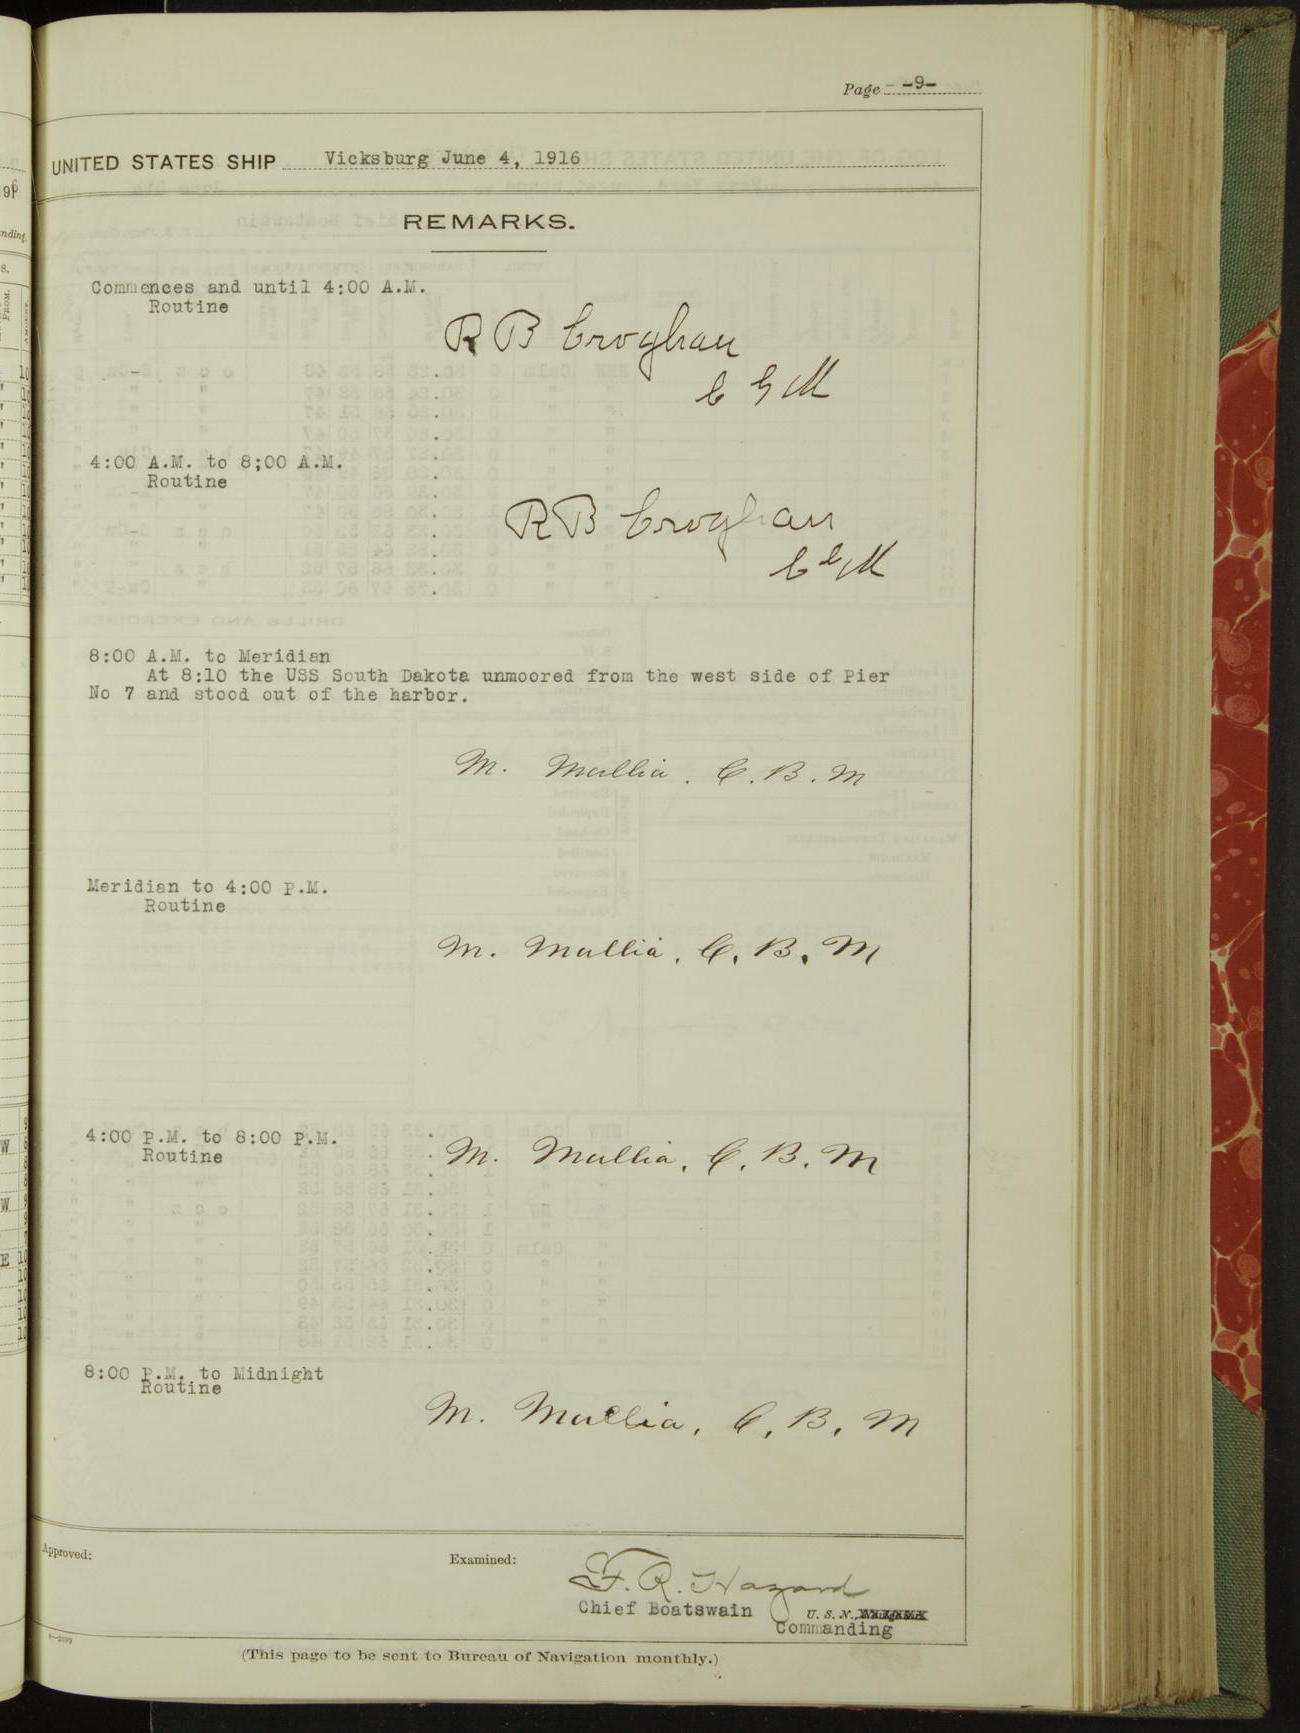 Page -9-
UNITED STATES SHIP Vicksburg June 4, 1916
REMARKS.
Commences and until 4:00 A.M.
Routine
R B Croghan
C G M
4:00 A.M. to 8;00 A.M.
Routine
R B Croghan
C G M
8:00 A.M. to Meridian
At 8:10 the USS South Dakota unmoored from the west side of Pier
No 7 and stood out of the harbor.
M. Mallia. C. B. M
Meridian to 4:00 P.M.
Routine
M. Mallia. C. B. M
4:00 P.M. to 8:00 P.M.
Routine
M. Mallia. C. B. M
8:00 P.M. to Midnight
Routine
M. Mallia. C. B. M
Approved:
Examined:
F. R. Hazard
Chief Boatswain U. S. N.,
Commanding
(This page to be sent to Bureau of Navigation monthly.)